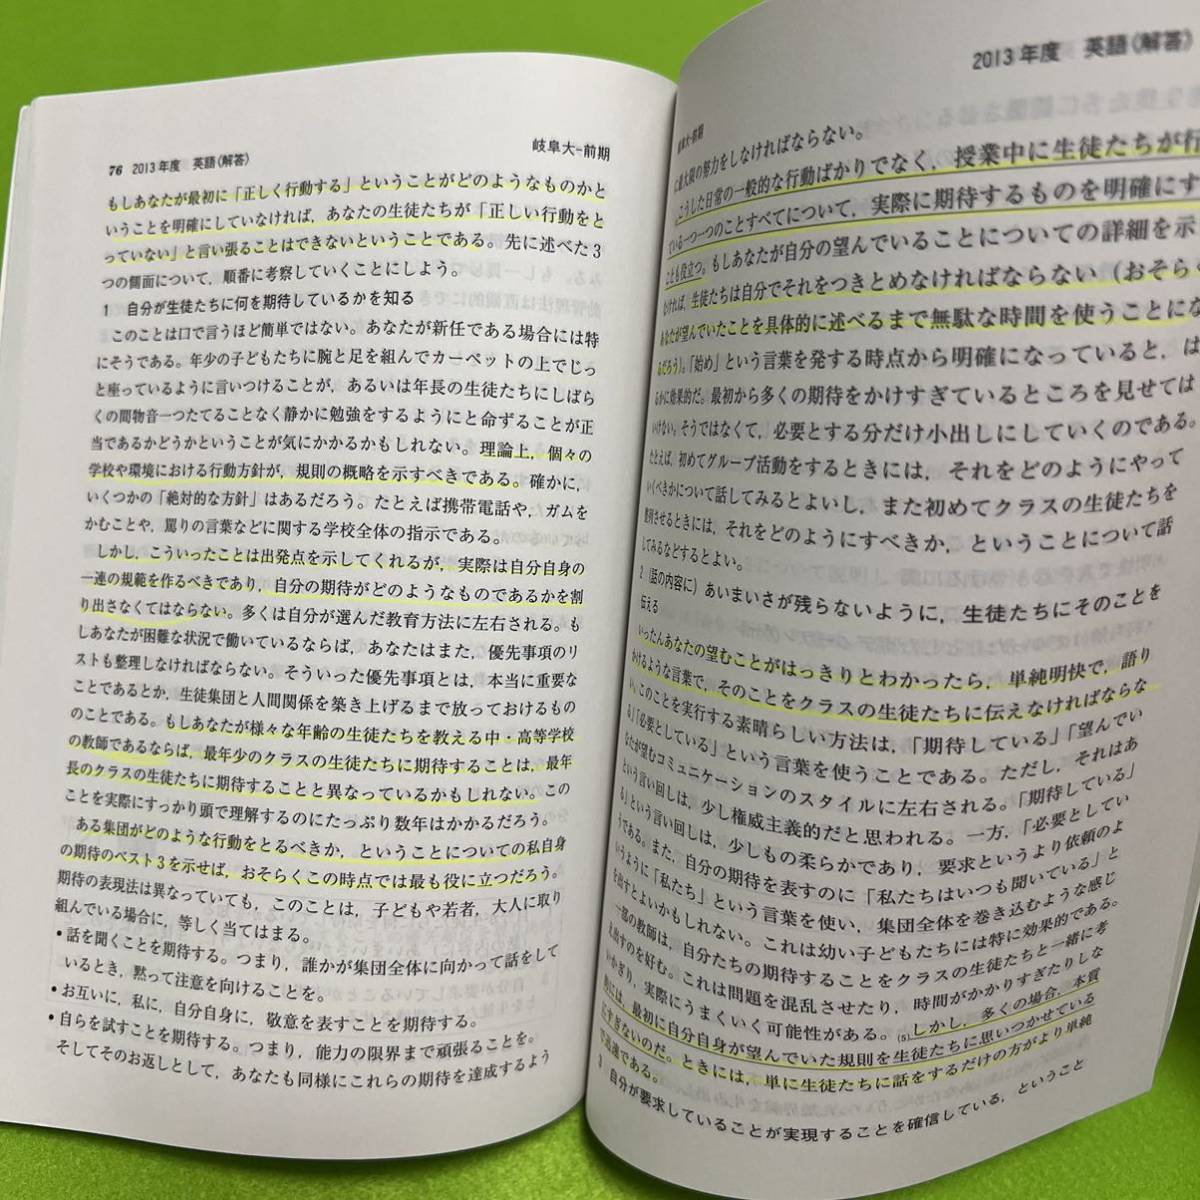 76 2013年度 英語(解答)
岐阜大-前期
もしあなたが最初に「正しく行動する」ということがどのようなものかと
いうことを明確にしていなければ，あなたの生徒たちが「正しい行動をと
っていない」と言い張ることはできないということである。先に述べた3
つの側面について，順番に考察していくことにしよう。
1 自分が生徒たちに何を期待しているかを知る
このことは口で言うほど簡単ではない。あなたが新任である場合には特
にそうである。年少の子どもたちに腕と足を組んでカーペットの上でじっ
と座っているように言いつけることが，あるいは年長の生徒たちにしばら
くの間物音一つたてることなく静かに勉強をするようにと命ずることが正
当であるかどうかということが気にかかるかもしれない。理論上，個々の
学校や環境における行動方針が，規則の概略を示すべきである。確かに，
いくつかの「絶対的な方針」はあるだろう。たとえば携帯電話や，ガムを
かむことや，罵りの言葉などに関する学校全体の指示である。
しかし，こういったことは出発点を示してくれるが，実際は自分自身の
一連の規範を作るべきであり，自分の期待がどのようなものであるかを割
り出さなくてはならない。多くは自分が選んだ教育方法に左右される。も
しあなたが困難な状況で働いているならば，あなたはまた，優先事項のリ
ストも整理しなければならない。そういった優先事項とは，本当に重要な
ことであるとか，生徒集団と人間関係を築き上げるまで放っておけるもの
のことである。もしあなたが様々な年齢の生徒たちを教える中・高等学校
の教師であるならば，最年少のクラスの生徒たちに期待することは，最年
長のクラスの生徒たちに期待することと異なっているかもしれない。この
ことを実際にすっかり頭で理解するのにたっぷり数年はかかるだろう。
ある集団がどのような行動をとるべきか，ということについての私自身
の期待のベスト3を示せば，おそらくこの時点では最も役に立つだろう。
期待の表現法は異なっていても，このことは，子どもや若者，大人に取り
組んでいる場合に，等しく当てはまる。
・話を聞くことを期待する。つまり，誰かが集団全体に向かって話をして
いるとき，黙って注意を向けることを。
・お互いに，私に，自分自身に，敬意を表すことを期待する。
・自らを試すことを期待する。つまり，能力の限界まで頑張ることを。
そしてそのお返しとして，あなたも同様にこれらの期待を達成するよう
2013年度 英語(解答)
岐阜大-前期
に最大限の努力をしなければならない。
こうした日常の一般的な行動ばかりでなく，授業中に生徒たちが行
ている一つ一つのことすべてについて，実際に期待するものを明確にす
ことも役立つ。もしあなたが自分の望んでいることについての詳細を示
なければ，生徒たちは自分でそれをつきとめなければならない(おそらく
あなたが望んでいたことを具体的に述べるまで無駄な時間を使うことにな
るだろう)。「始め」という言葉を発する時点から明確になっていると，は
るかに効果的だ。最初から多くの期待をかけすぎているところを見せては
いけない。そうではなくて，必要とする分だけ小出しにしていくのである。
たとえば，初めてグループ活動をするときには，それをどのようにやって
いくべきかについて話してみるとよいし，また初めてクラスの生徒たちを
整列させるときには，それをどのようにすべきか，ということについて話
してみるなどするとよい。
2 (話の内容に)あいまいさが残らないように，生徒たちにそのことを
伝える
いったんあなたの望むことがはっきりとわかったら，単純明快で，語り
かけるような言葉で，そのことをクラスの生徒たちに伝えなければならな
い。このことを実行する素晴らしい方法は，「期待している」「望んでい
る」「必要としている」という言葉を使うことである。ただし，それはあ
なたが望むコミュニケーションのスタイルに左右される。「期待している」
という言い回しは，少し権威主義的だと思われる。一方，「必要としてい
る」という言い回しは，少しもの柔らかであり，要求というより依頼のよ
うである。また，自分の期待を表すのに「私たちはいつも聞いている」と
いうように「私たち」という言葉を使い，集団全体を巻き込むような感じ
を出すとよいかもしれない。これは幼い子どもたちには特に効果的である。
一部の教師は，自分たちの期待することをクラスの生徒たちと一緒に考
え出すのを好む。これは問題を混乱させたり，時間がかかりすぎたりしな
いかぎり，実際にうまくいく可能性がある。(5)しかし，多くの場合，本質
的には，最初に自分自身が望んでいた規則を生徒たちに思いつかせている
にすぎないのだ。ときには，単に生徒たちに話をするだけの方がより単純
で迅速である。
3 自分が要求していることが実現することを確信している，ということ